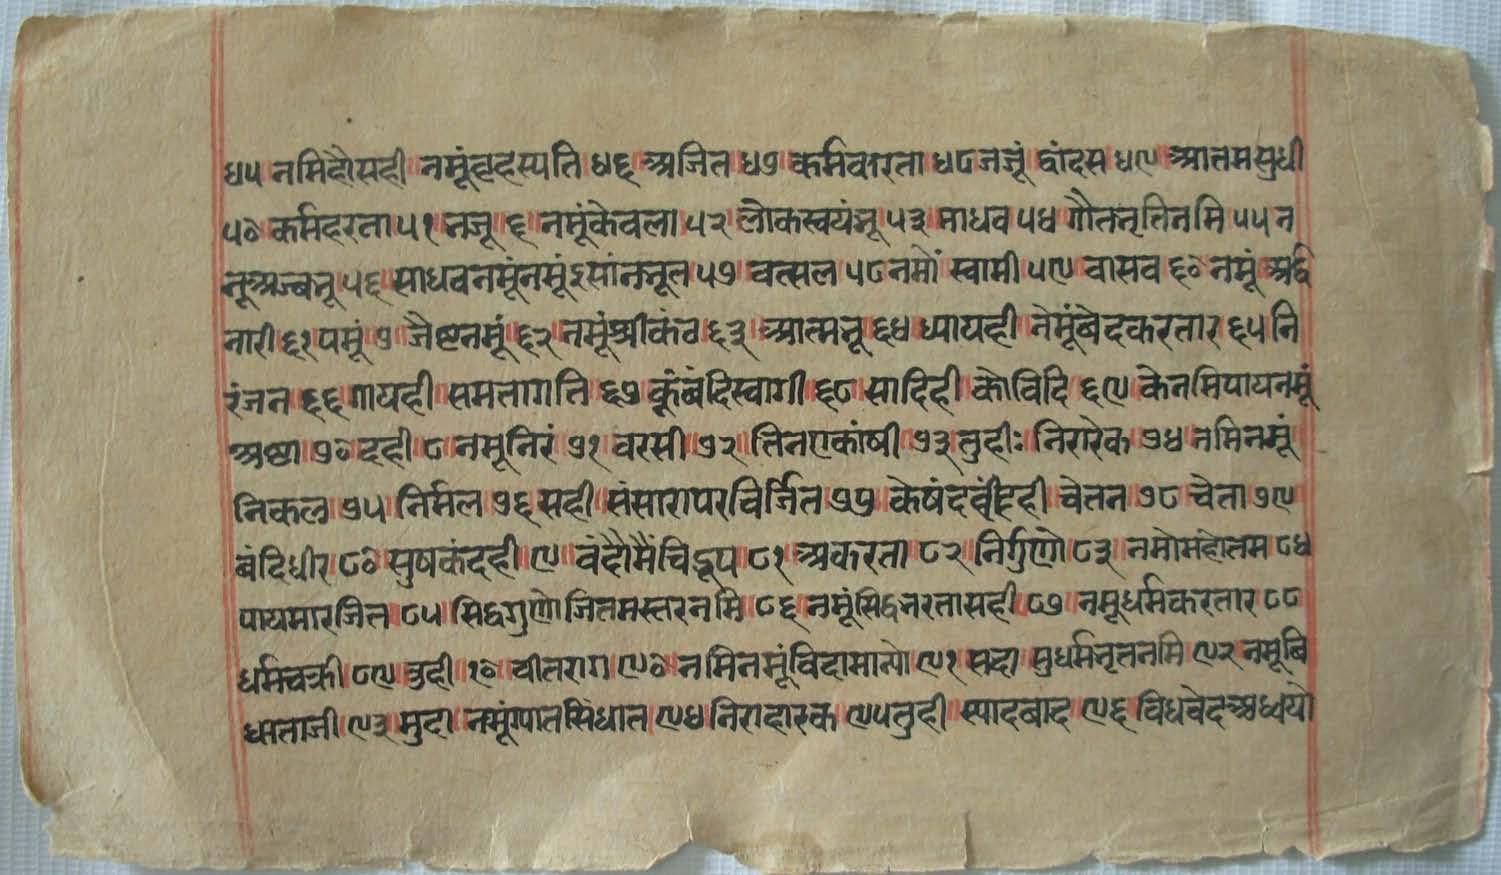 ४५ नमिहौसही नमूंवृहस्पति ४६ अजित ४७ कर्मवारता ४८ जजूं द्वांदस ४९ आतमसुधी
५० कर्महरता ५१ नजू ६ नमूंकेवला ५२ लोकस्वयंभू ५३ माधव ५४ गौतनृतिनमि ५५ न
५६ साधवनमूंनमूं ५७ वत्सल ५८ नमों स्वामी ५९ वासव ६० नमूं अर्द्ध
नारी ६१ पमूं ७ जैष्टनमूं ६२ नमूंश्रीकंठ ६३ आत्मभू ६४ ध्यायही नमूंबेदकरतार ६५ नि
रंजन ६६ गायही समलागति ६७ ६८ सादिही कोविदि ६९ केनमिपायनमूं
अष्टा ७० दही ८ नमूनिरं ७१ वरसी ७२ तिनएकांषी ७३ तुहीः निरारेक ७४ नमिनमूं
निकल ७५ निर्मल ७६ सही संसारापरविर्जित ७७ चेतन ७८ चेता ७९
बंदिधीर ८० सुषकंदही ९ वंदौमैंचिद्रूप ८१ अकरता ८२ निर्गुणो ८३ नमोमहोतम ८४
पायमारजित ८५ सिद्धगुणोजितमस्तरनमि ८६ नमूंसिद्धभरतासही ८७ नमूधर्मकरतार ८८
धर्मचक्री ८९ तुही १० वीतराग ९० नमिनमूंविदामान्यो ९१ सदा सुधर्मनृतनमि ९२ नमूबि
धाताजी ९३ मुदा नमूंग्पातसिंधात ९४ निराहारक ९५ तुही स्पादबाद ९६ विधवेदअध्वयो